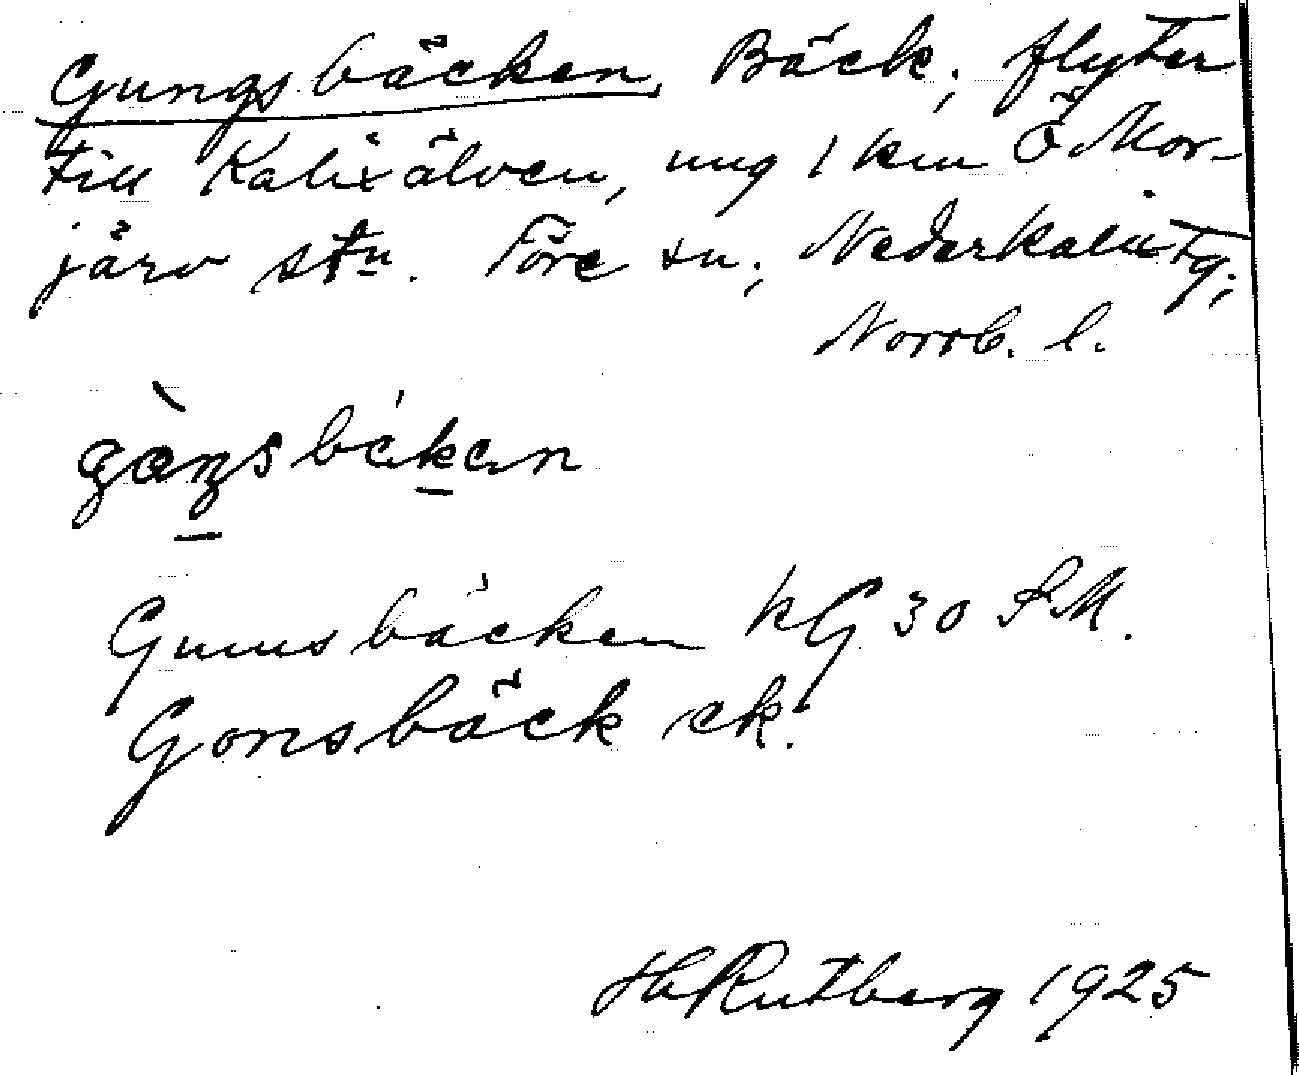 Gungsbäcken, Bäck; flyter
till Kalixälven, ung 1 km Ö Mor-
järv stn. Töre sn; Nederkalix tg;
Norrb. l.
Gunnsbäcken kG 30 SM.
Gonsbäck ek.
H Rutberg 1925